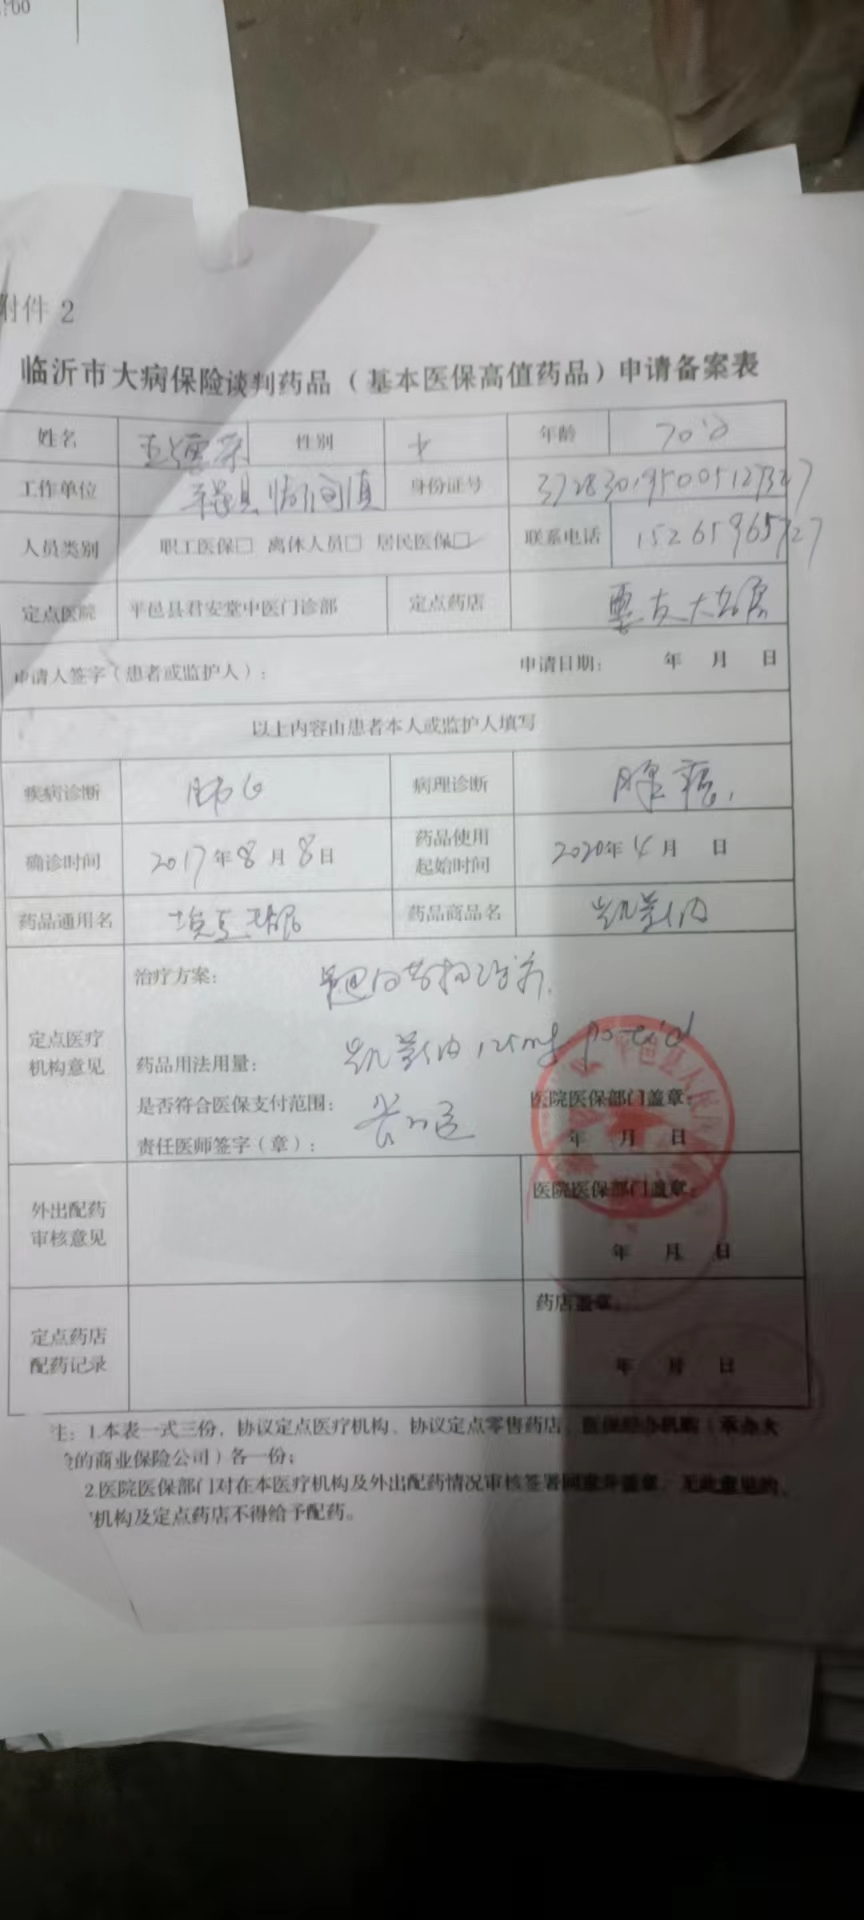 :00
附件 2
临沂市大病保险谈判药品（基本医保高值药品）申请备案表
姓名 性别 女 年龄 70岁
工作单位 平邑县临涧镇 身份证号
人员类别 职工医保□ 离休人员□ 居民医保□ 联系电话 15265965727
定点医院 平邑县君安堂中医门诊部 定点药店 大药房
申请人签字（患者或监护人）： 申请日期： 年 月 日
以上内容由患者本人或监护人填写
疾病诊断 肺Ca 病理诊断 腺癌
确诊时间 2017年8月8日 药品使用起始时间 2020年4月 日
药品通用名 埃克替尼 药品商品名 凯美纳
定点医疗机构意见
治疗方案： 靶向药物治疗
药品用法用量： 凯美纳 125mg po tid
是否符合医保支付范围：
责任医师签字（章）：
医院医保部门盖章：
年 月 日
外出配药审核意见
医院医保部门盖章：
年 月 日
定点药店配药记录
药店盖章：
年 月 日
注：1.本表一式三份，协议定点医疗机构、协议定点零售药店、医保经办机构（承办大
险的商业保险公司）各一份；
2.医院医保部门对在本医疗机构及外出配药情况审核签署同意并盖章，无此意见的，
机构及定点药店不得给予配药。